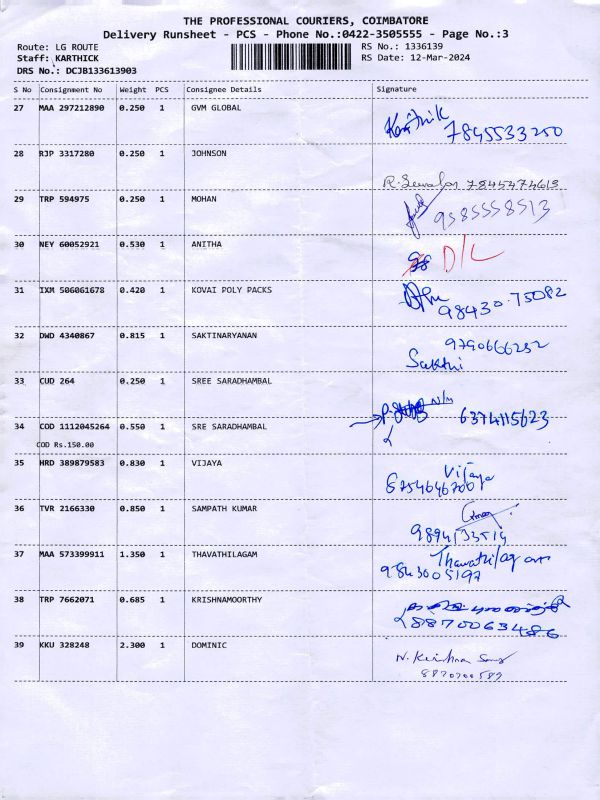 THE PROFESSIONAL COURIERS, COIMBATORE
Delivery Runsheet - PCS - Phone No.:0422-3505555 - Page No.:3
Route: LG ROUTE RS No.: 1336139
Staff: KARTHICK RS Date: 12-Mar-2024
DRS No.: DCJB133613903
S No Consignment No Weight PCS Consignee Details Signature
27 MAA 297212890 0.250 1 GVM GLOBAL
Karthik 7845533200
28 RJP 3317280 0.250 1 JOHNSON
7845474613
29 TRP 594975 0.250 1 MOHAN
9585558513
30 NEY 60052921 0.530 1 ANITHA D/L
31 IXM 506061678 0.420 1 KOVAI POLY PACKS
98430 75082
32 DWD 4340867 0.815 1 SAKTINARYANAN
9790666232
Sakthi
33 CUD 264 0.250 1 SREE SARADHAMBAL
N/M
34 COD 1112045264 0.550 1 SRE SARADHAMBAL 6374115623
COD Rs.150.00
35 HRD 389879583 0.830 1 VIJAYA Vijaya
36 TVR 2166330 0.850 1 SAMPATH KUMAR
37 MAA 573399911 1.350 1 THAVATHILAGAM Thavathilagam
9843005197
38 TRP 7662071 0.685 1 KRISHNAMOORTHY
8870063486
39 KKU 328248 2.300 1 DOMINIC
N. Krishna
8870700589